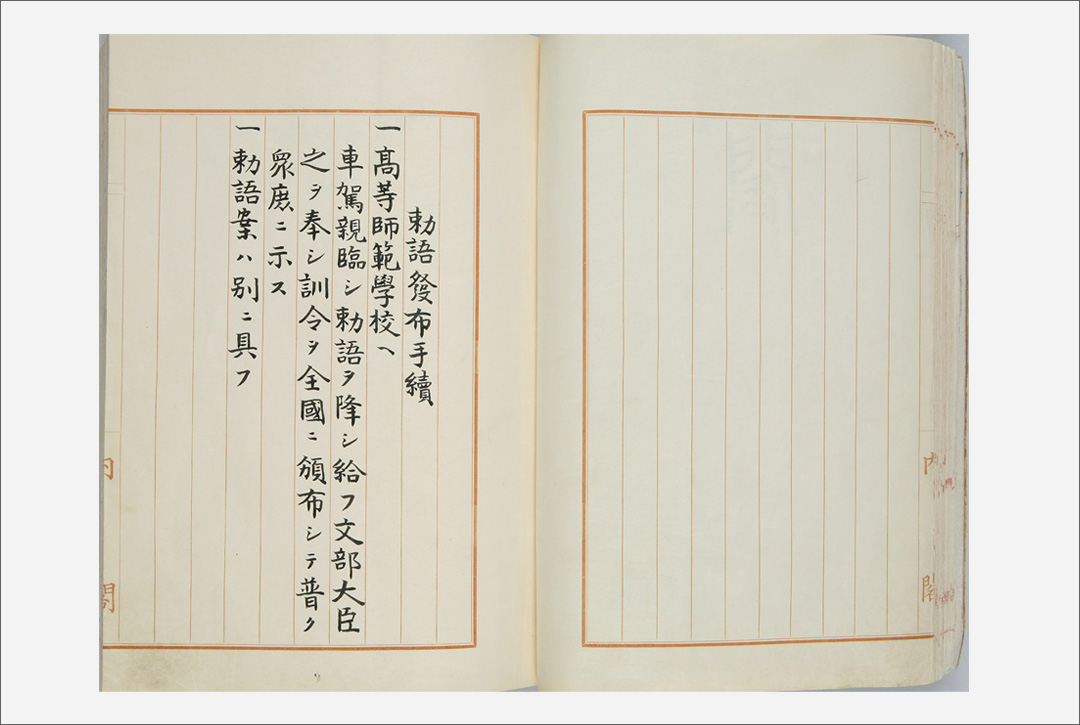 勅語發布手續
一高等師範學校ヘ
車駕親臨シ勅語ヲ降シ給フ文部大臣
之ヲ奉シ訓令ヲ全國ニ頒布シテ普ク
衆庻ニ示ス
一勅語案ハ別ニ具フ
内閣
内閣